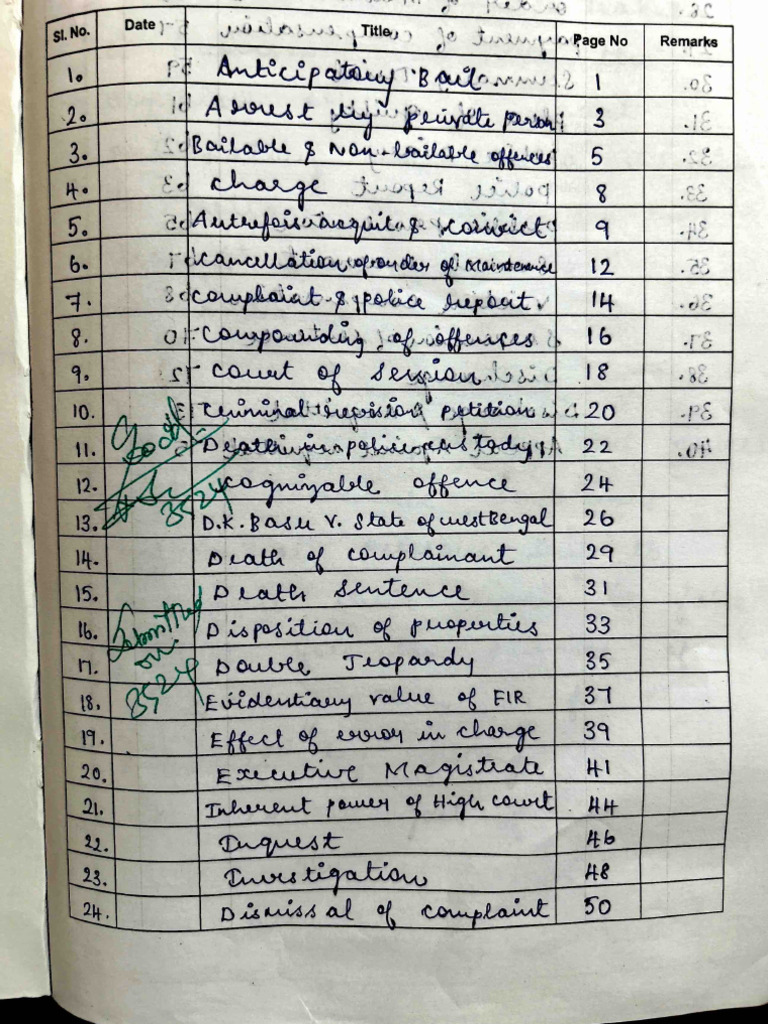 Sl. No. Date Title Page No Remarks
1. Anticipatory Bail 1
2. Arrest by private person 3
3. Bailable & Non-bailable offences 5
4. Charge 8
5. Auterfois acquit & convict 9
6. Cancellation of order of Maintenence 12
7. Complaint & police report 14
8. Compounding of offences 16
9. Court of Session 18
10. Criminal revision petition 20
11. Death in police custody 22
12. Cognizable offence 24
13. D.K. Basu V. State of West Bengal 26
14. Death of complainant 29
15. Death Sentence 31
16. Disposition of properties 33
17. Double Jeopardy 35
18. Evidentiary value of FIR 37
19. Effect of error in charge 39
20. Executive Magistrate 41
21. Inherent power of High Court 44
22. Inquest 46
23. Investigation 48
24. Dismissal of complaint 50
Good
Submitted
on